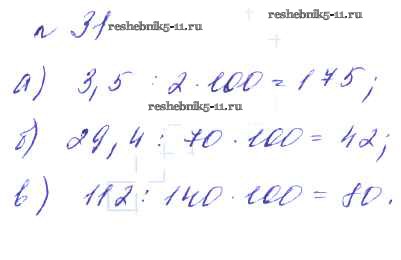 reshebnik5-11.ru
n 31 reshebnik5-11.ru
а) 3,5 : 2 · 100 = 175;
reshebnik5-11.ru
б) 29,4 : 70 · 100 = 42;
в) 112 : 140 · 100 = 80.